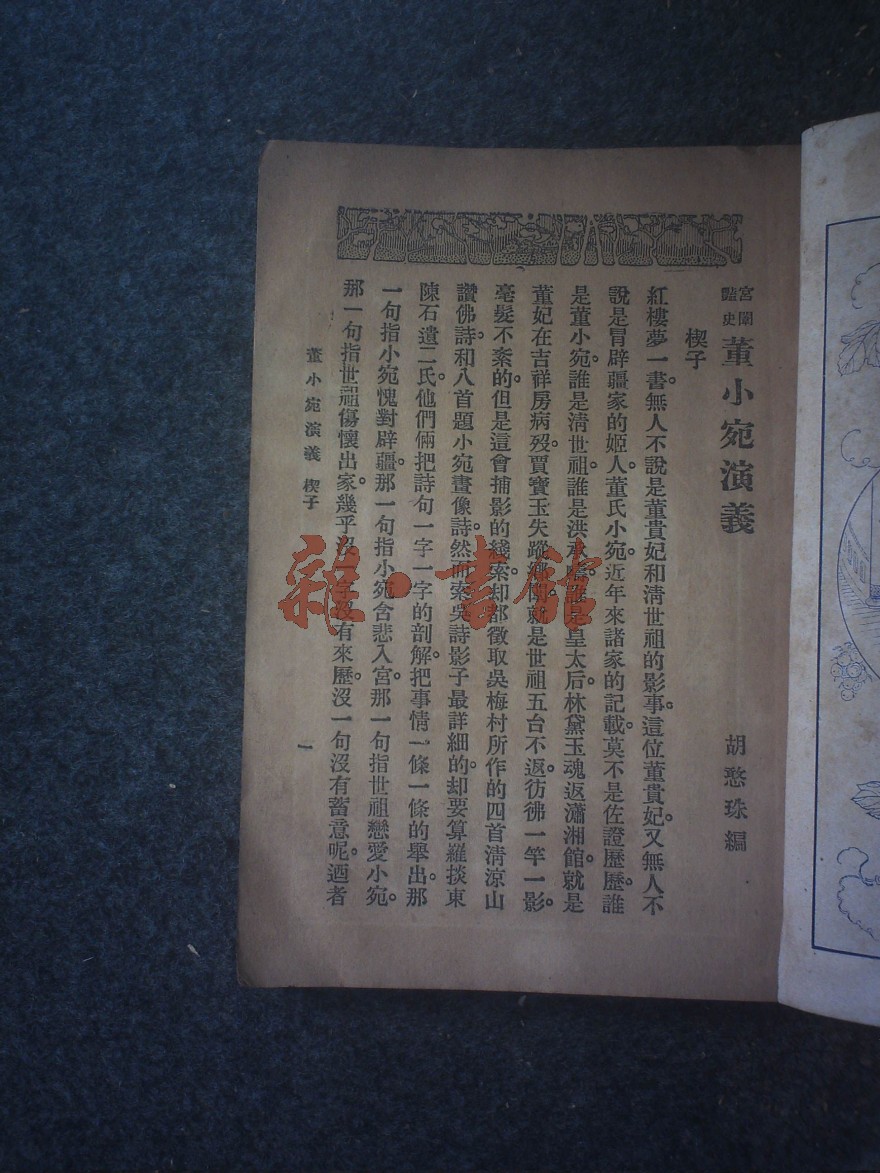 宮闈
豔史
董小宛演義
胡憨珠編
楔子
紅樓夢一書。無人不說是董貴妃和清世祖的影事。這位董貴妃。又無人不
說是冒辟疆家的姬人。董氏小宛。近年來諸家的記載。莫不是佐證歷歷。誰
是董小宛。誰是清世祖。誰是洪承疇。誰是皇太后。林黛玉魂返瀟湘館。就是
董妃在吉祥房病歿。賈寶玉失蹤鄉闈。就是世祖五台不返。彷彿一竿一影。
毫髮不紊的。但是這會捕影的綫索。却都徵取吳梅村所作的四首清涼山
讚佛詩。和八首題小宛畫像詩。然而索吳詩影子最詳細的。却要算羅掞東
陳石遺二氏。他們倆把詩句一字一字的剖解。把事情一條一條的舉出。那
一句指小宛愧對辟疆。那一句指小宛含悲入宮。那一句指世祖戀愛小宛。
那一句指世祖傷懷出家。幾乎沒一字沒有來歷。沒一句沒有蓄意呢。迺者
董小宛演義 楔子
一
雜·書館